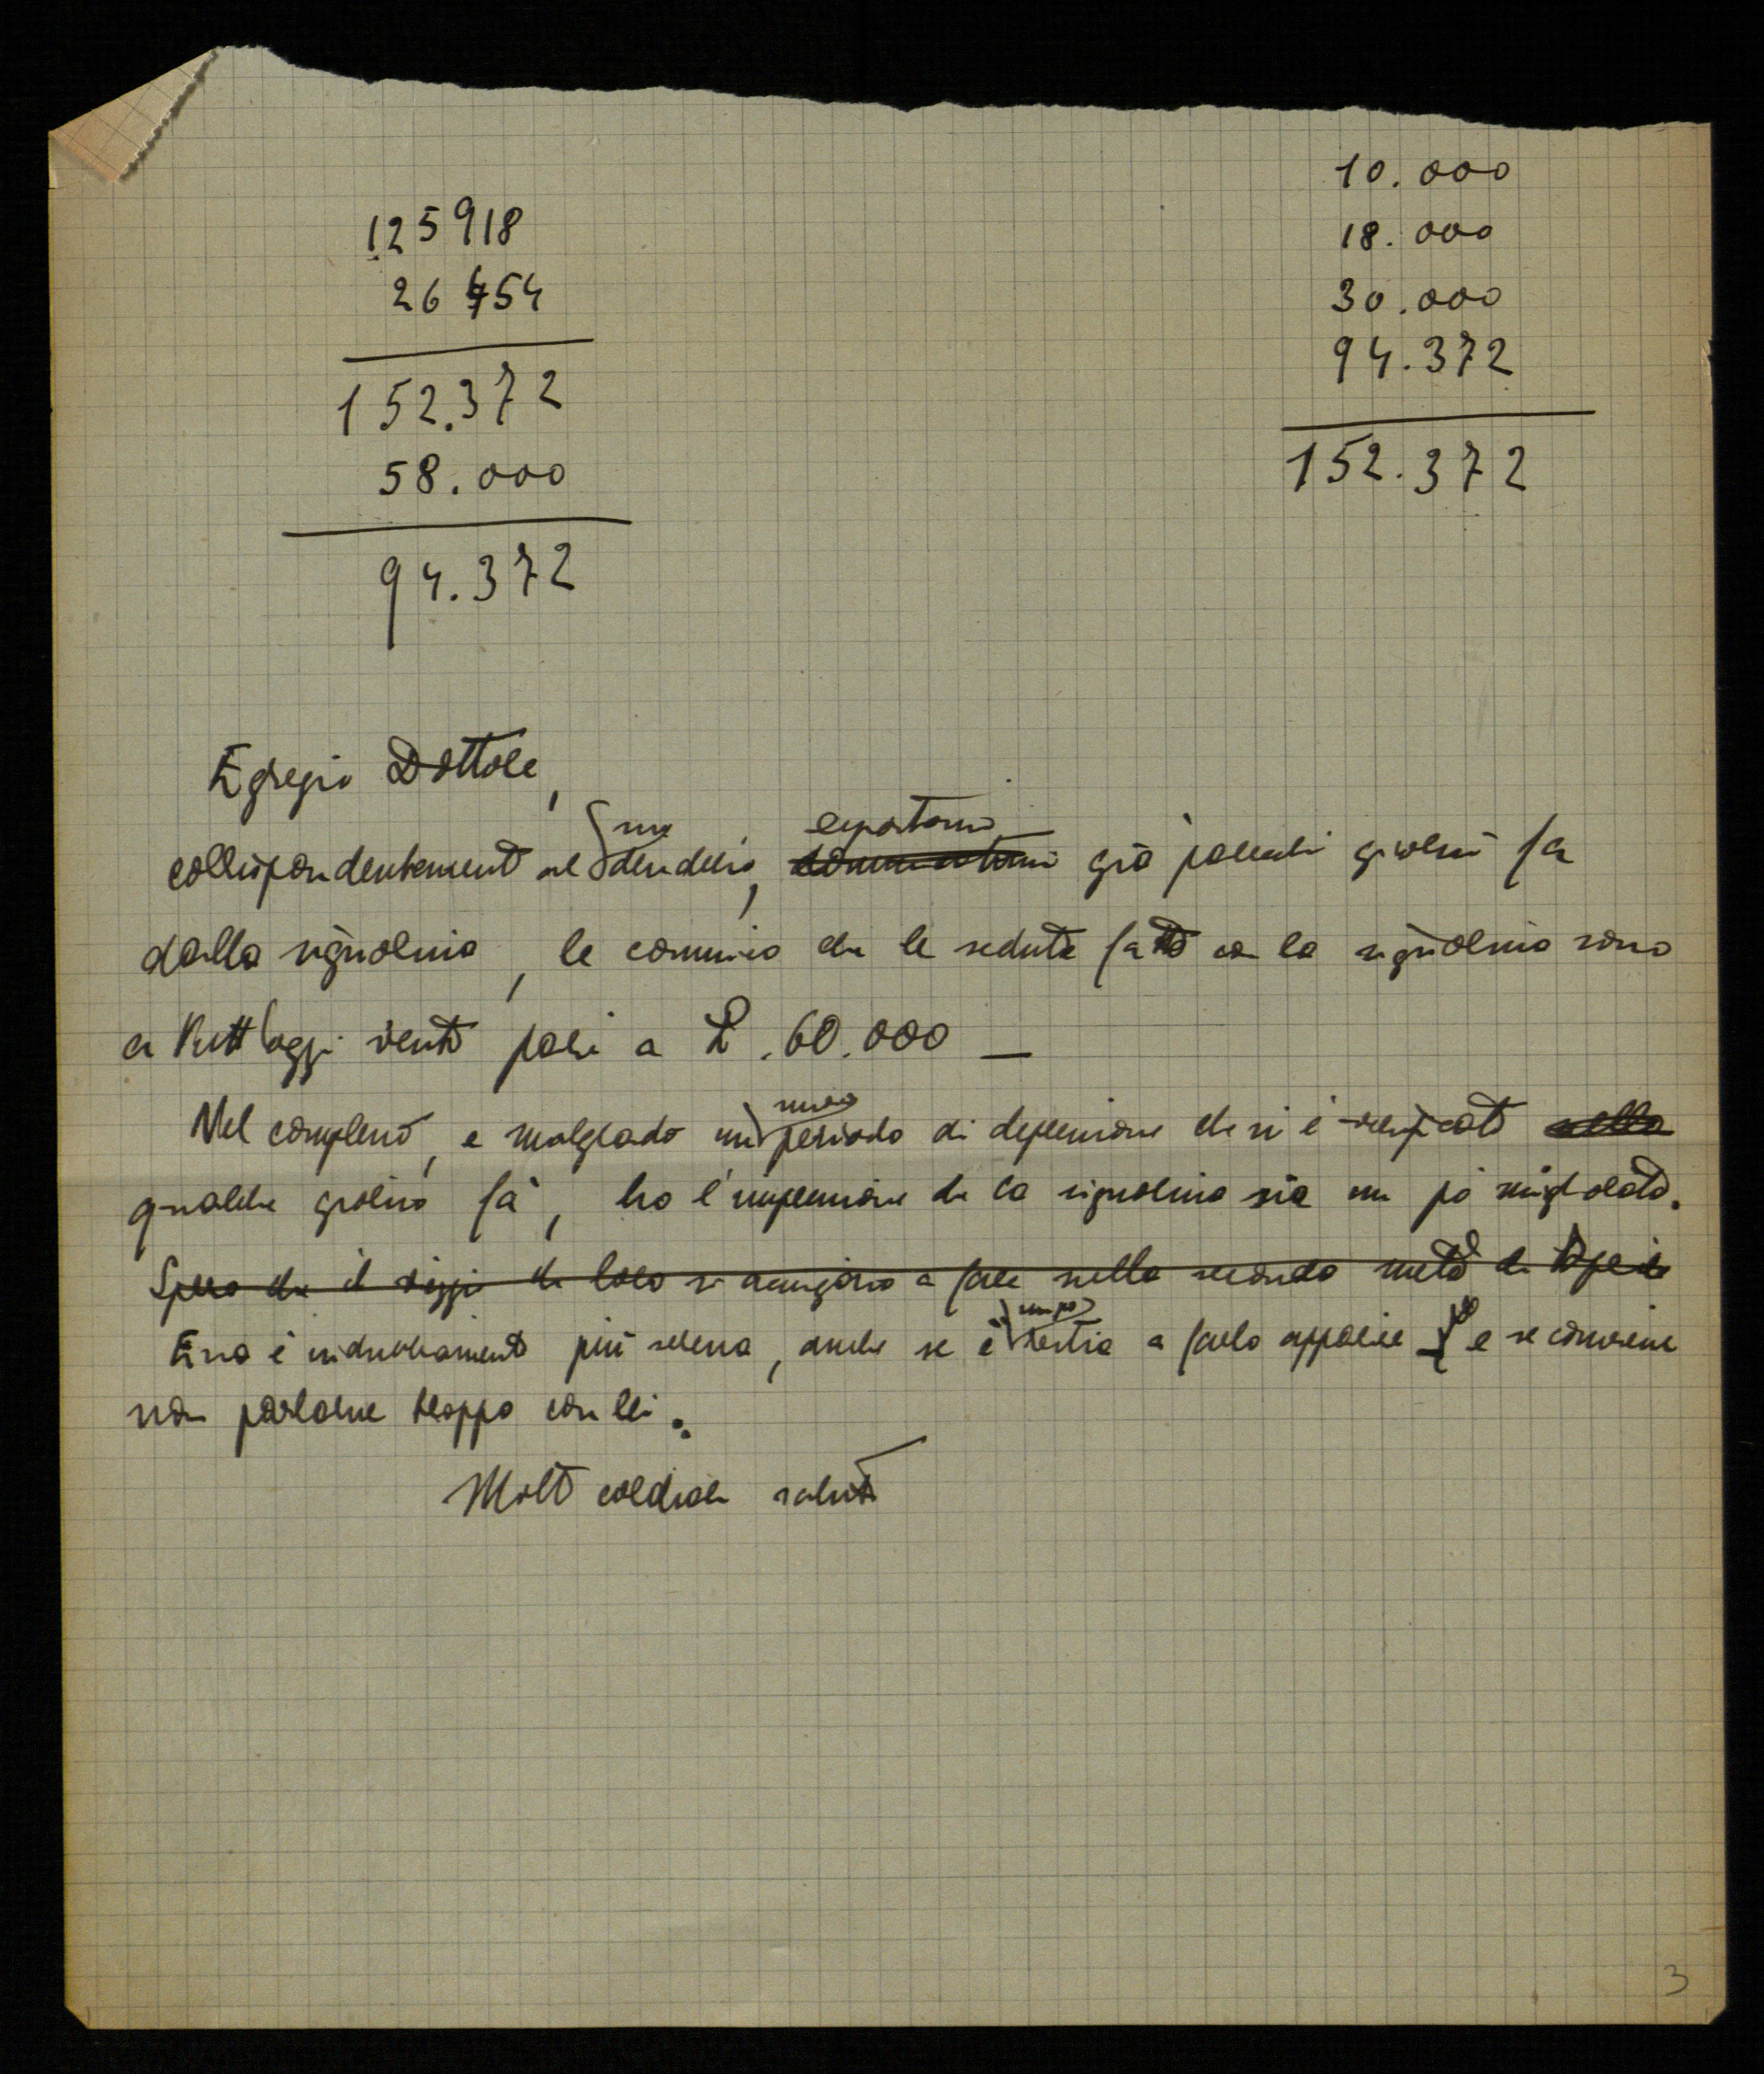 125918
26454
152.372
58.000
94.372
10.000
18.000
30.000
94.372
152.372
Egregio Dottore,
corrispondentemente al suo desiderio, espostomi già parecchi giorni fa
dalla signorina, le comunico che le sedute fatte con la signorina sono
a tutt'oggi venti pari a L. 60.000 —
Nel complesso, e malgrado un nuovo periodo di depressione che si è verificato nella
qualche giorno fà, ho l'impressione che la signorina sia un pò migliorata.
Spero che il viaggio che loro si accingono a fare nella seconda metà di Aprile
Essa è indubbiamente più serena, anche se è un po' restia a farlo apparire e se conviene
non parlarne troppo con lei.
Molti cordiali saluti
3